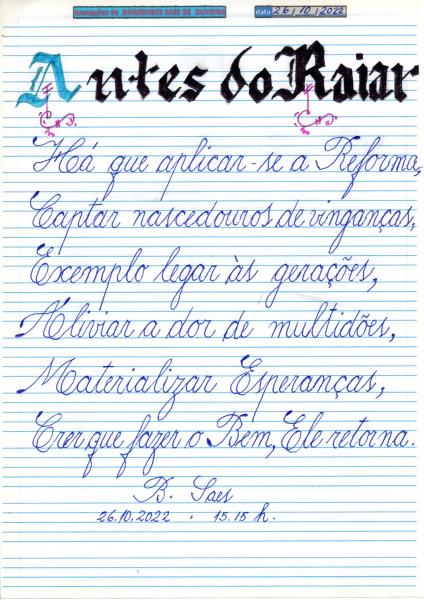 Anotações de BOAVENTURA SAES DE OLIVEIRA data 26/10/2022
Antes do Raiar
Há que aplicar-se a Reforma,
Captar nascedouros de vinganças,
Exemplo legar às gerações,
Aliviar a dor de multidões,
Materializar Esperanças,
Crer que fazer o Bem, Ele retorna.
B. Saes
26.10.2022 . 15.15 h.